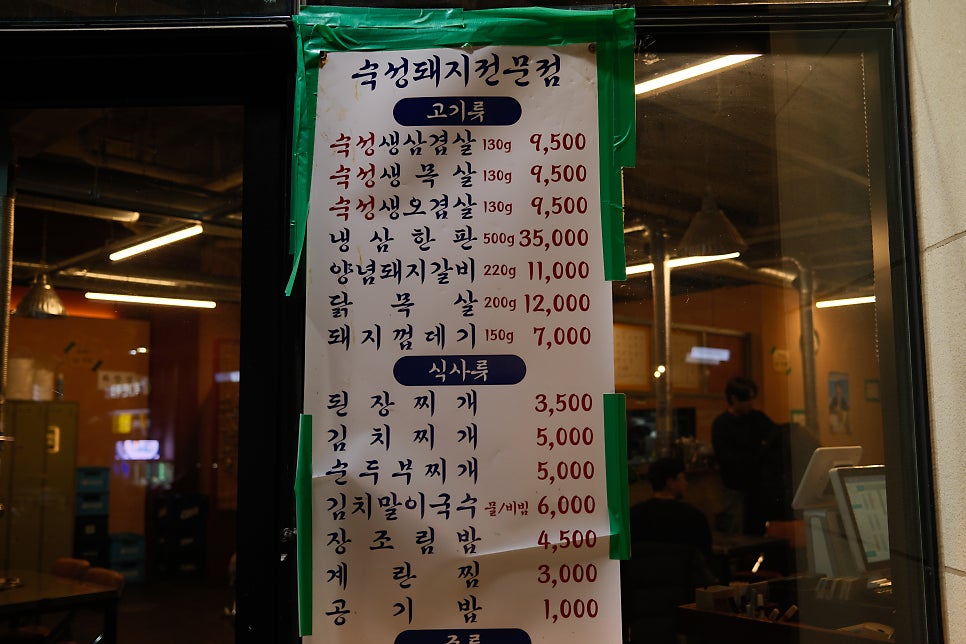 숙성돼지전문점
고기류
숙성생삼겹살 130g 9,500
숙성생목살 130g 9,500
숙성생오겹살 130g 9,500
냉삼한판 500g 35,000
양념돼지갈비 220g 11,000
닭목살 200g 12,000
돼지껍데기 150g 7,000
식사류
된장찌개 3,500
김치찌개 5,000
순두부찌개 5,000
김치말이국수 물/비빔 6,000
장조림밥 4,500
계란찜 3,000
공기밥 1,000
주류